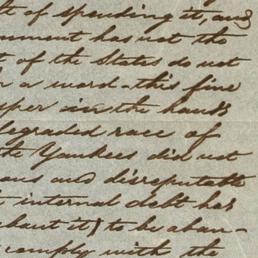 t of spending it, and
ernment has not the
t of the States do not
n a word - this fine
per in the hands
degraded race of
the Yankees did not
ous and disreputable
t internal debt has
about it) to be aban-
comply with the